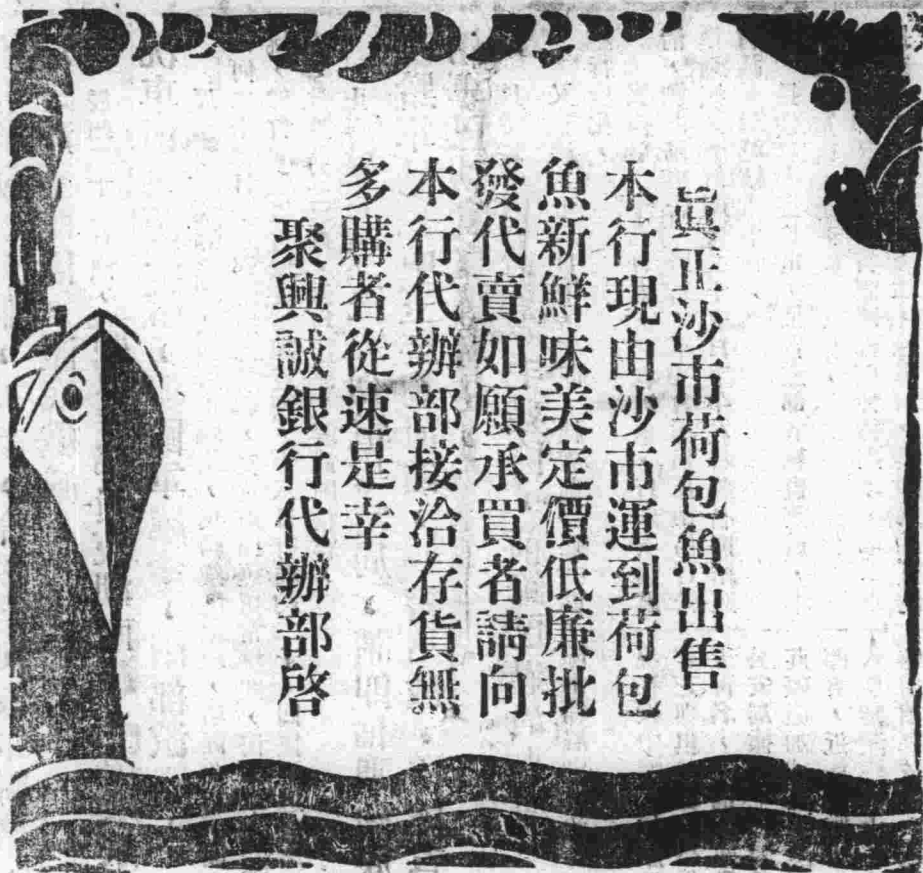 眞正沙市荷包魚出售
本行現由沙市運到荷包
魚新鮮味美定價低廉批
發代賣如願承買者請向
本行代辦部接洽存貨無
多購者從速是幸
聚興誠銀行代辦部啓